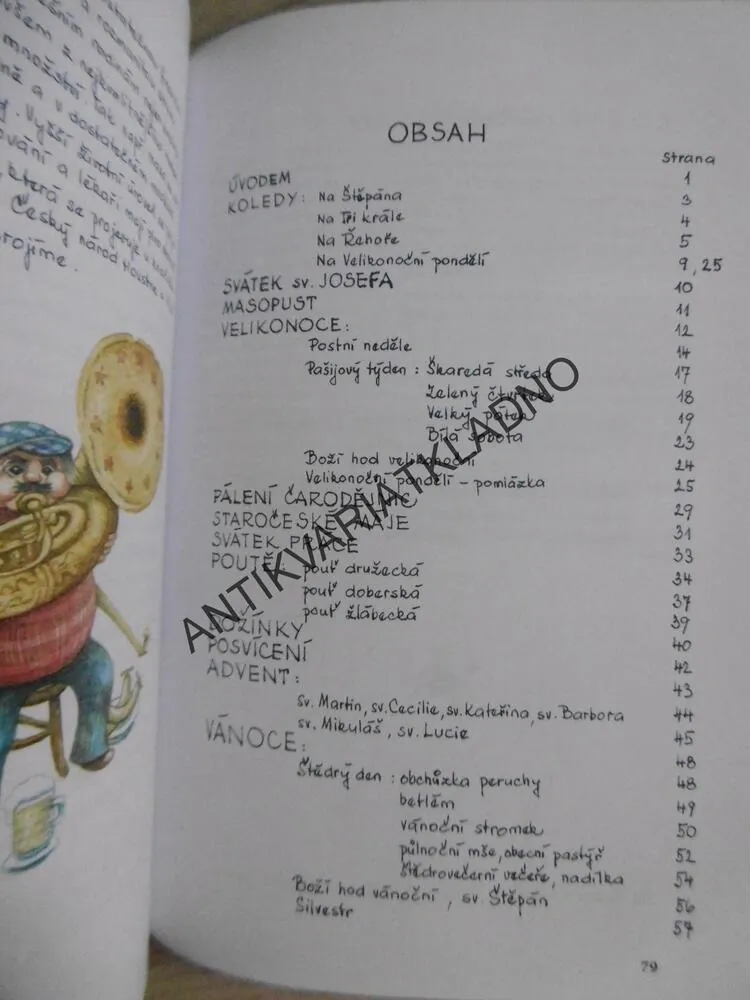 množství, tak např. maso
ně a v dostatečném
y. Vyšší životní úroveň
ování a lékaři mají
která se projevuje
Český národ
rojíme.
OBSAH
strana
ÚVODEM 1
KOLEDY: Na Štěpána 3
Na Tři krále 4
Na Řehoře 5
Na Velikonoční pondělí 9, 25
SVÁTEK sv. JOSEFA 10
MASOPUST 11
VELIKONOCE: 12
Postní neděle 14
Pašijový týden: Škaredá středa 17
Zelený čtvrtek 18
Velký pátek 19
Bílá sobota 23
Boží hod velikonoční 24
Velikonoční pondělí - pomlázka 25
PÁLENÍ ČARODĚJNIC 29
STAROČESKÉ MÁJE 31
SVÁTEK PRÁCE 33
POUTĚ: pouť družecká 34
pouť doberská 37
pouť žlábecká 39
DOŽÍNKY 40
POSVÍCENÍ 42
ADVENT: 43
sv. Martin, sv. Cecilie, sv. Kateřina, sv. Barbora 44
sv. Mikuláš, sv. Lucie 45
VÁNOCE: 48
Štědrý den: obchůzka peruchy 48
betlém 49
vánoční stromek 50
půlnoční mše, obecní pastýř 52
štědrovečerní večeře, nadílka 54
Boží hod vánoční, sv. Štěpán 56
Silvestr 57
79
ANTIKVARIATKLADNO